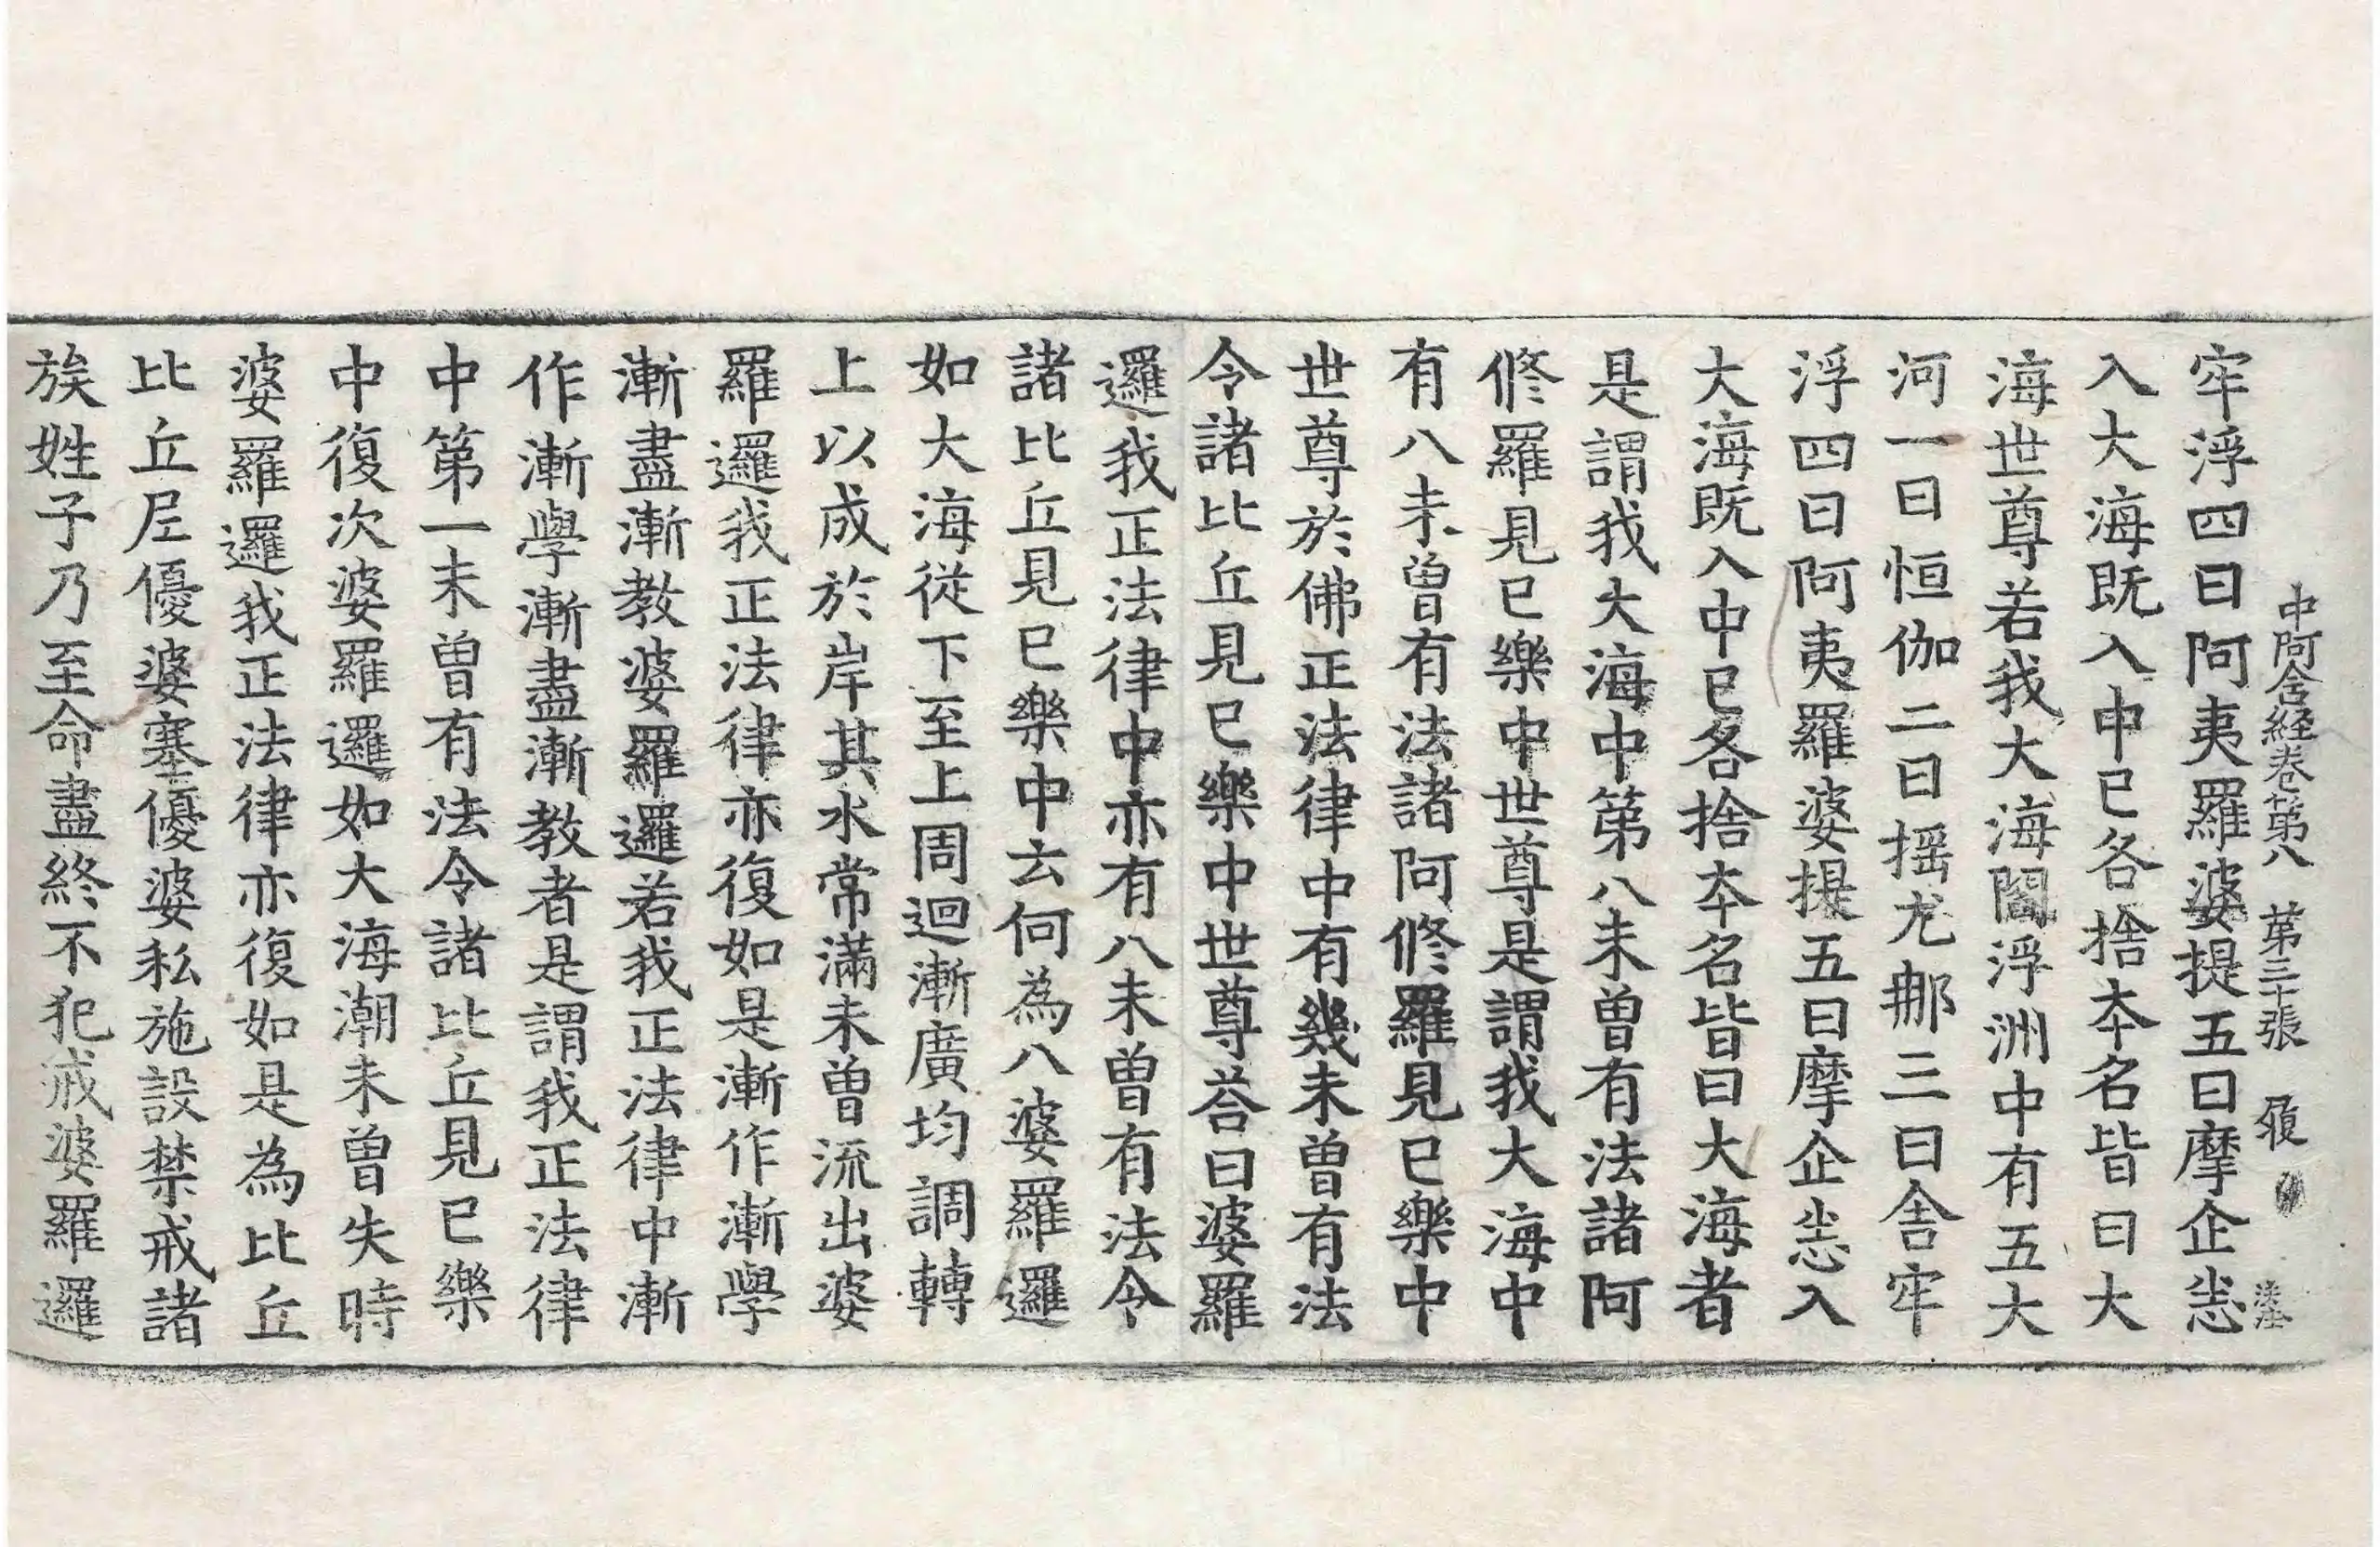 中阿含經卷第八 第二十張 履
牢浮四曰阿夷羅婆提五曰摩企悉
入大海既入中已各捨本名皆曰大
海世尊若我大海閻浮洲中有五大
河一曰恒伽二曰搖尤那三曰舍牢
浮四曰阿夷羅婆提五曰摩企悉入
大海既入中已各捨本名皆曰大海者
是謂我大海中第八未曾有法諸阿
修羅見已樂中世尊是謂我大海中
有八未曾有法諸阿修羅見已樂中
世尊於佛正法律中有幾未曾有法
令諸比丘見已樂中世尊荅曰婆羅
邏我正法律中亦有八未曾有法令
諸比丘見已樂中云何為八婆羅邏
如大海從下至上周迴漸廣均調轉
上以成於岸其水常滿未曾流出婆
羅邏我正法律亦復如是漸作漸學
漸盡漸教婆羅邏若我正法律中漸
作漸學漸盡漸教者是謂我正法律
中第一未曾有法令諸比丘見已樂
中復次婆羅邏如大海潮未曾失時
婆羅邏我正法律亦復如是為比丘
比丘尼優婆塞優婆私施設禁戒諸
族姓子乃至命盡終不犯戒婆羅邏